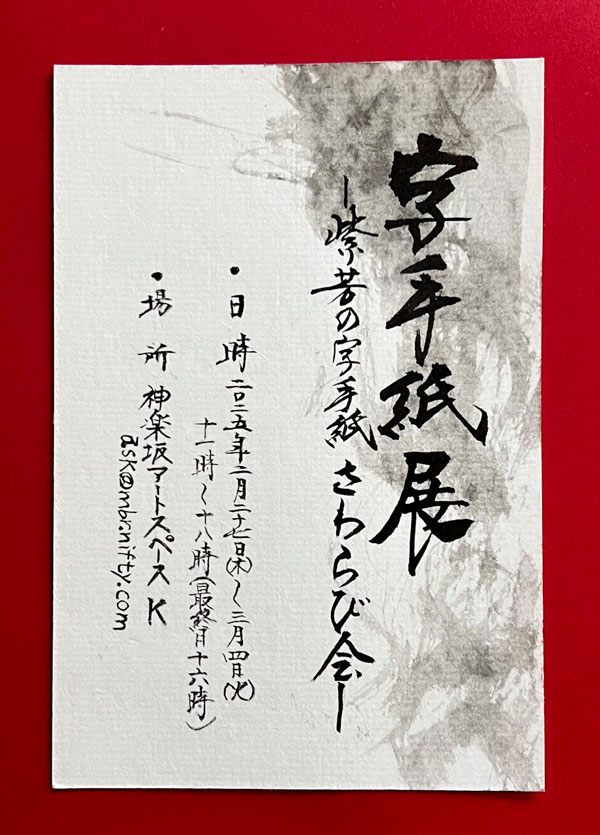 字手紙展
ー紫芳の字手紙 さわらび会ー
・日時 二〇二五年二月二十七日(木)〜三月四日(火)
十一時〜十八時(最終日十六時)
・場所 神楽坂アートスペースK
ask@mbr.nifty.com